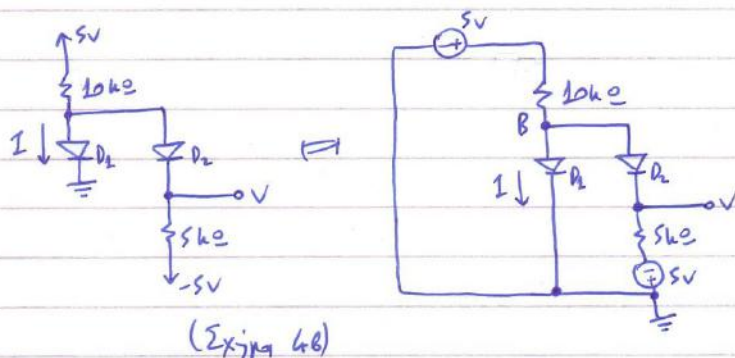 5V
10kΩ
I
D1
D2
V
5kΩ
-5V
5V
10kΩ
B
I
D1
D2
V
5kΩ
5V
(Σχήμα 4β)